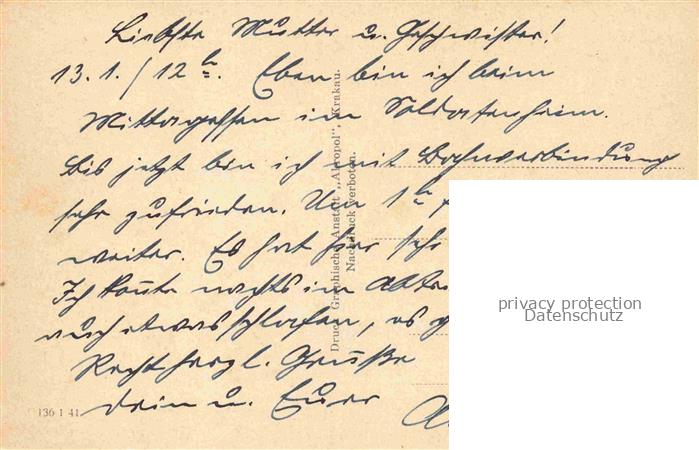 Liebste Mutter u. Geschwister!
13. 1. / 12 h. Eben bin ich beim
Mittagessen im Soldatenheim.
Bis jetzt bin ich mit Bahnverbindung
sehr zufrieden. Um 1 h
weiter. Es hat hier sehr
Ich konnte nachts im
auch etwas schlafen, es
Recht herzl. Grüße
Dein u. Euer
Druck: Graphische Anstalt „Akropol", Krakau.
Nachdruck verboten.
136 1 41
privacy protection
Datenschutz